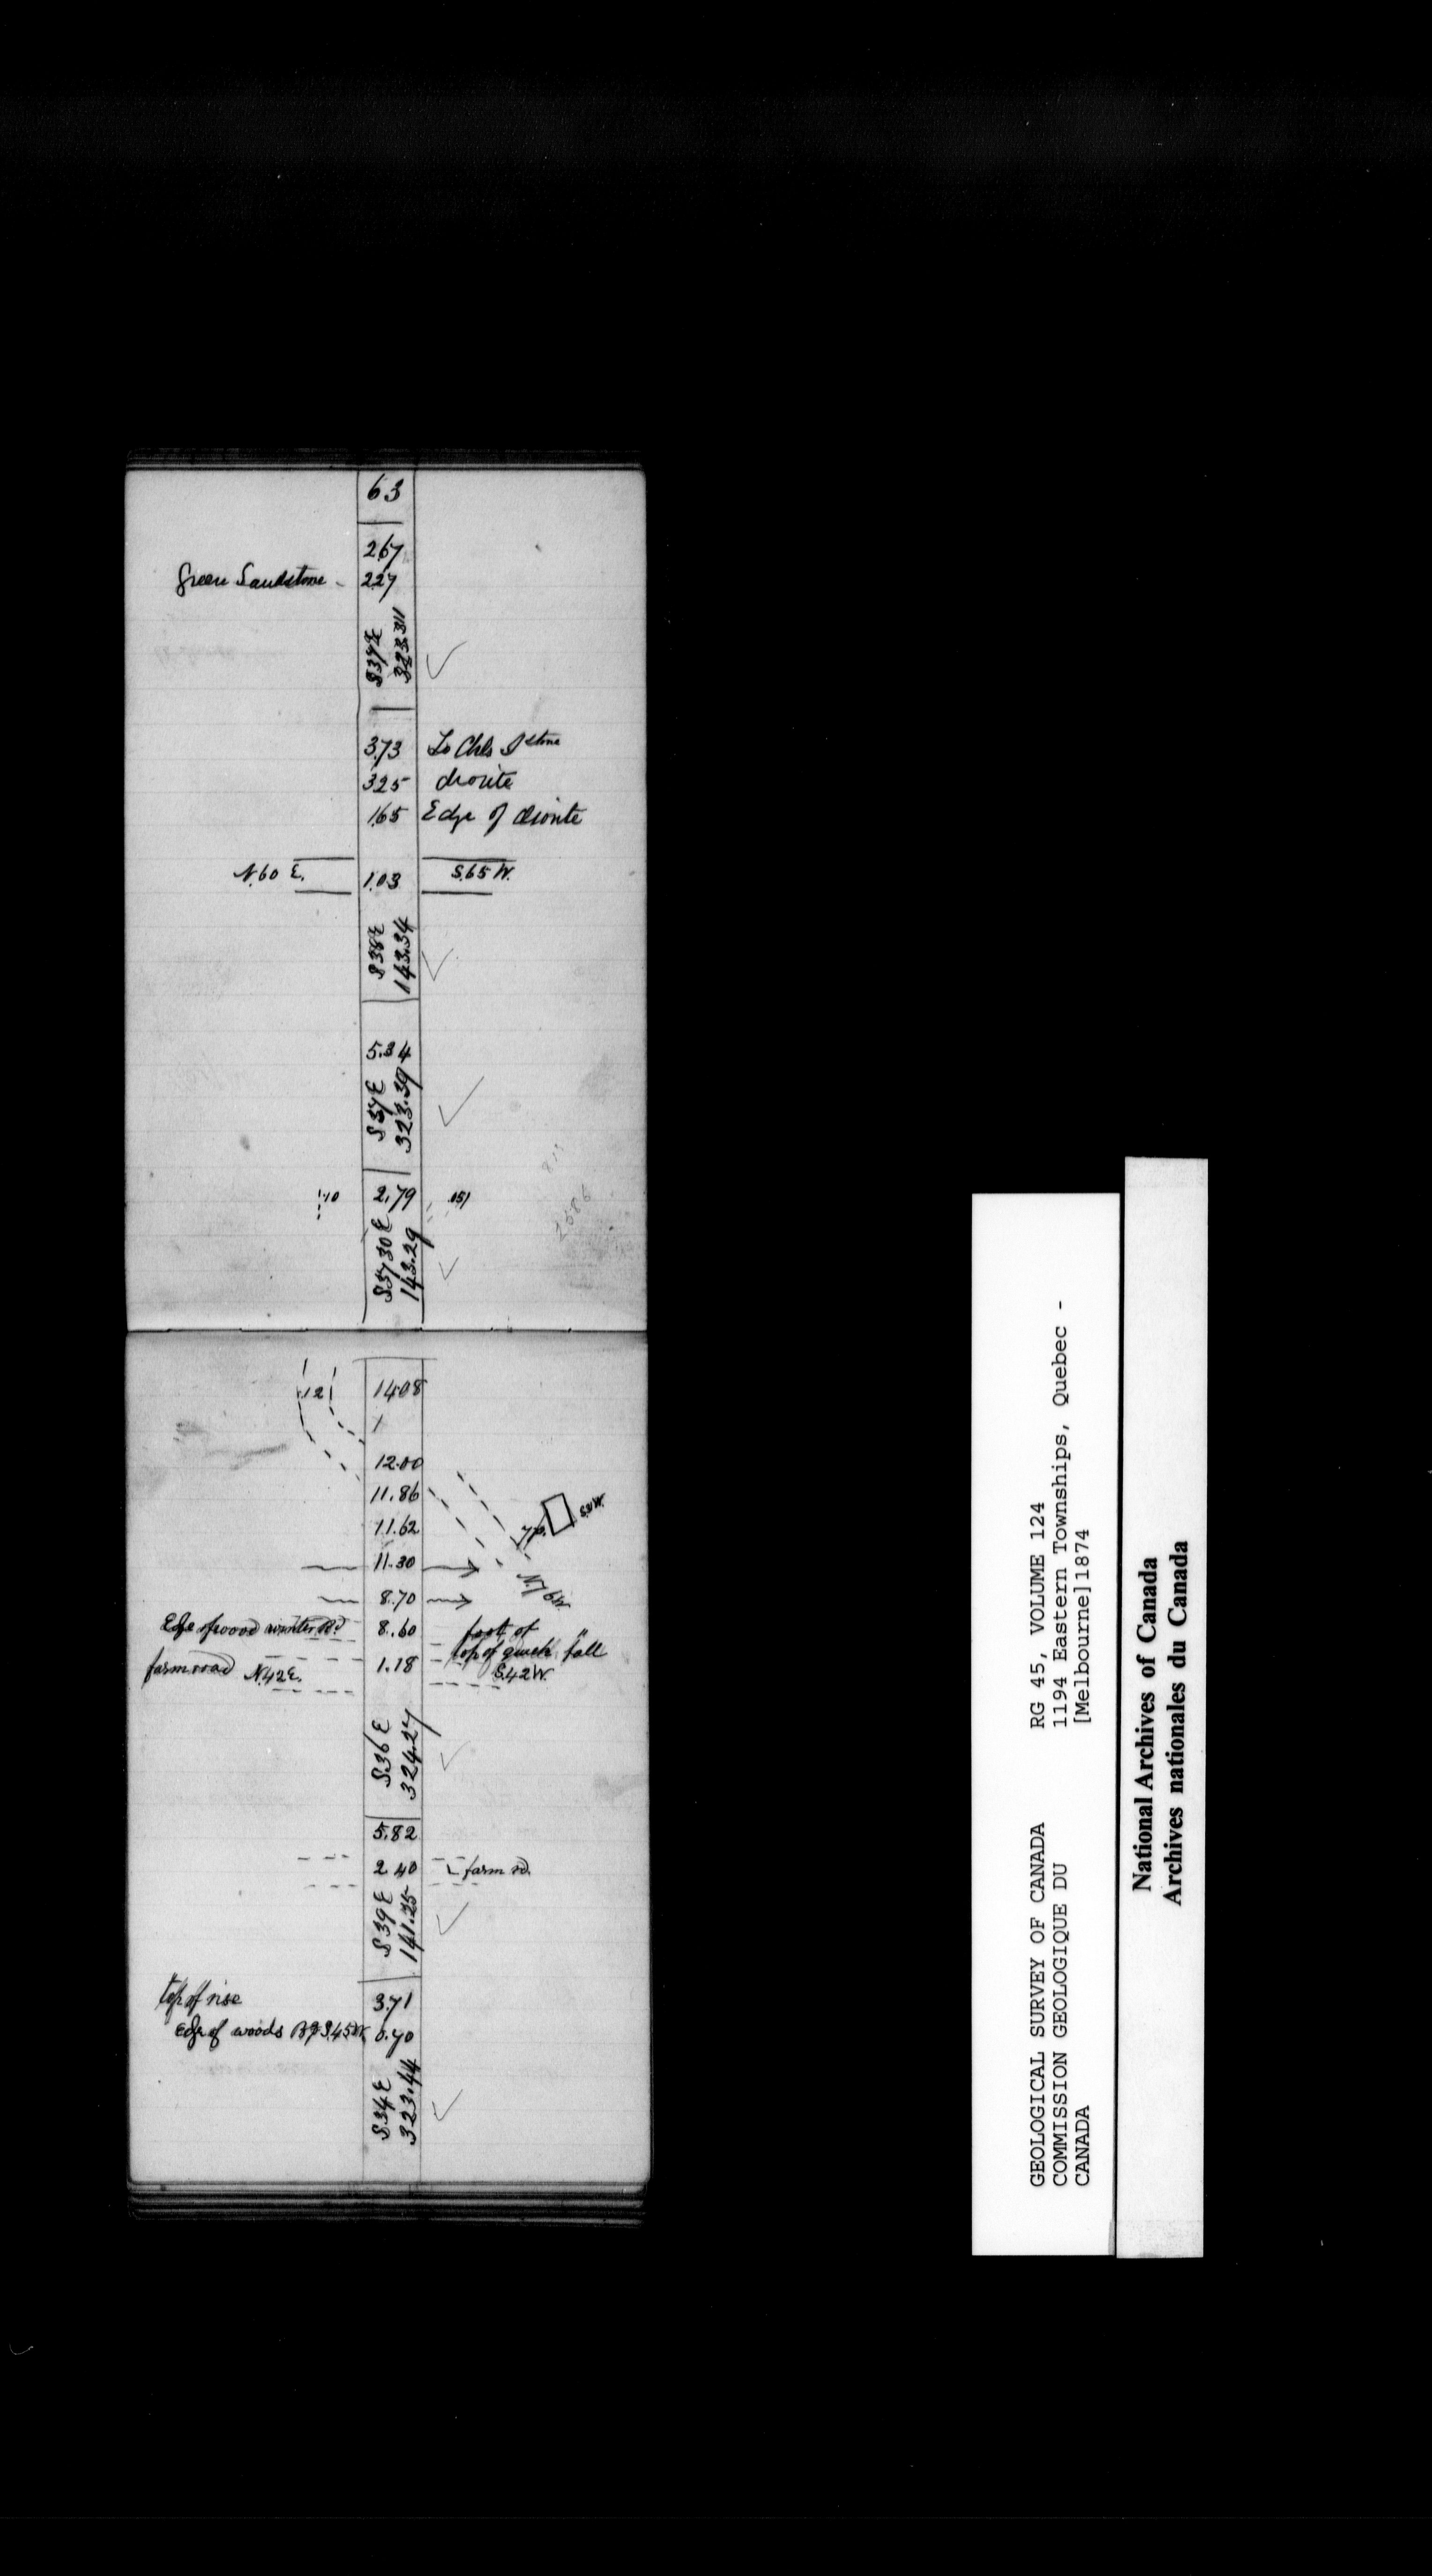 63
267
Green Sandstone - 227
S37E
323.311
3.73 To Chls Sstone
325 diorite
165 Edge of diorite
N.60 E. 1.03 S.65 W.
S38E
143.34
5.34
S37E
323.39
10 2.79 .051
S37 30E
143.29
12 1408
1
12.00
11.86
11.62
11.30
N.76W.
8.70
Edge of wood winter Rd 8.60 foot of
top of quick fall
farm road N.42E. 1.18 S.42W.
S36E
324.27
5.82
2.40 farm rd.
S39E
141.25
top of rise 3.71
Edge of woods S.45W. 0.70
S34E
323.44
GEOLOGICAL SURVEY OF CANADA
COMMISSION GEOLOGIQUE DU
CANADA
RG 45, VOLUME 124
1194 Eastern Townships, Quebec -
[Melbourne]1874
National Archives of Canada
Archives nationales du Canada